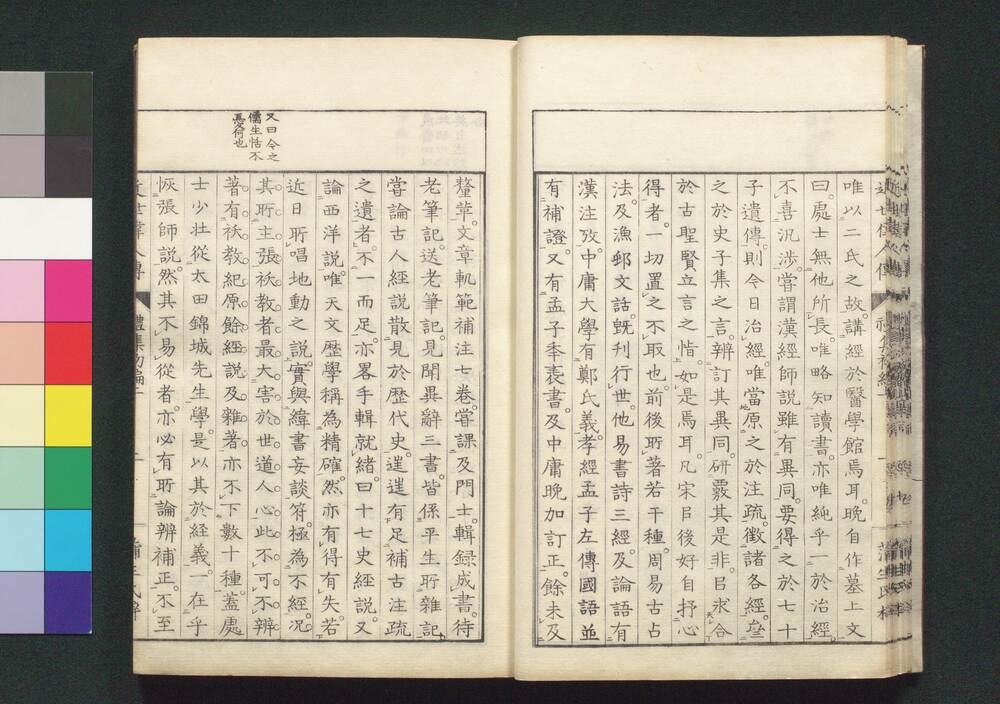 唯以二氏之故。講經於醫學館焉耳。晚自作墓上文
曰。處士無他所長。唯略知讀書。亦唯純乎一於治經。
不喜汎涉。嘗謂漢經師說雖有異同。要得之於七十
子遺傳。則今日治經唯當原之於注疏。徵諸各經。參
之於史子集之言。辨訂其異同。研覈其是非。㠯求合
於古聖賢立言之恉。如是焉耳。凡宋㠯後好自抒心
得者。一切置之不取也。前後所著若干種。周易古占
法。及漁邨文話。旣刊行世。他易書詩三經。及論語有
漢注攷。中庸大學有鄭氏義。孝經孟子左傳國語並
有補證。又有孟子年表書。及中庸晚加訂正。餘未及
釐草。文章軌範補注七卷。嘗課及門士。輯録成書。待
老筆記。送老筆記。見聞異辭三書。皆係平生所雜記。
嘗論古人經說散見於歷代史。䢱䢱有足補古注疏
之遺者。不一而足。亦畧手輯就緖。曰十七史經說。又
論西洋說。唯天文歷學稱為精確。然亦有得有失。若
近日所唱地動之說。實與緯書妄談符。極為不經。況
其所主張祅教者最大害於世道人心。此不可不辨
著有祅教紀原。餘經說及雜著亦不下數十種。蓋處
士少壯從太田錦城先生學。是以其於經義。一在乎
恢張師說。然其不易從者。亦必有所論辨補正。不至
又曰今之
儒生恬不
為何也
近世偉人傳
禮集初編
二
蒲生氏梓